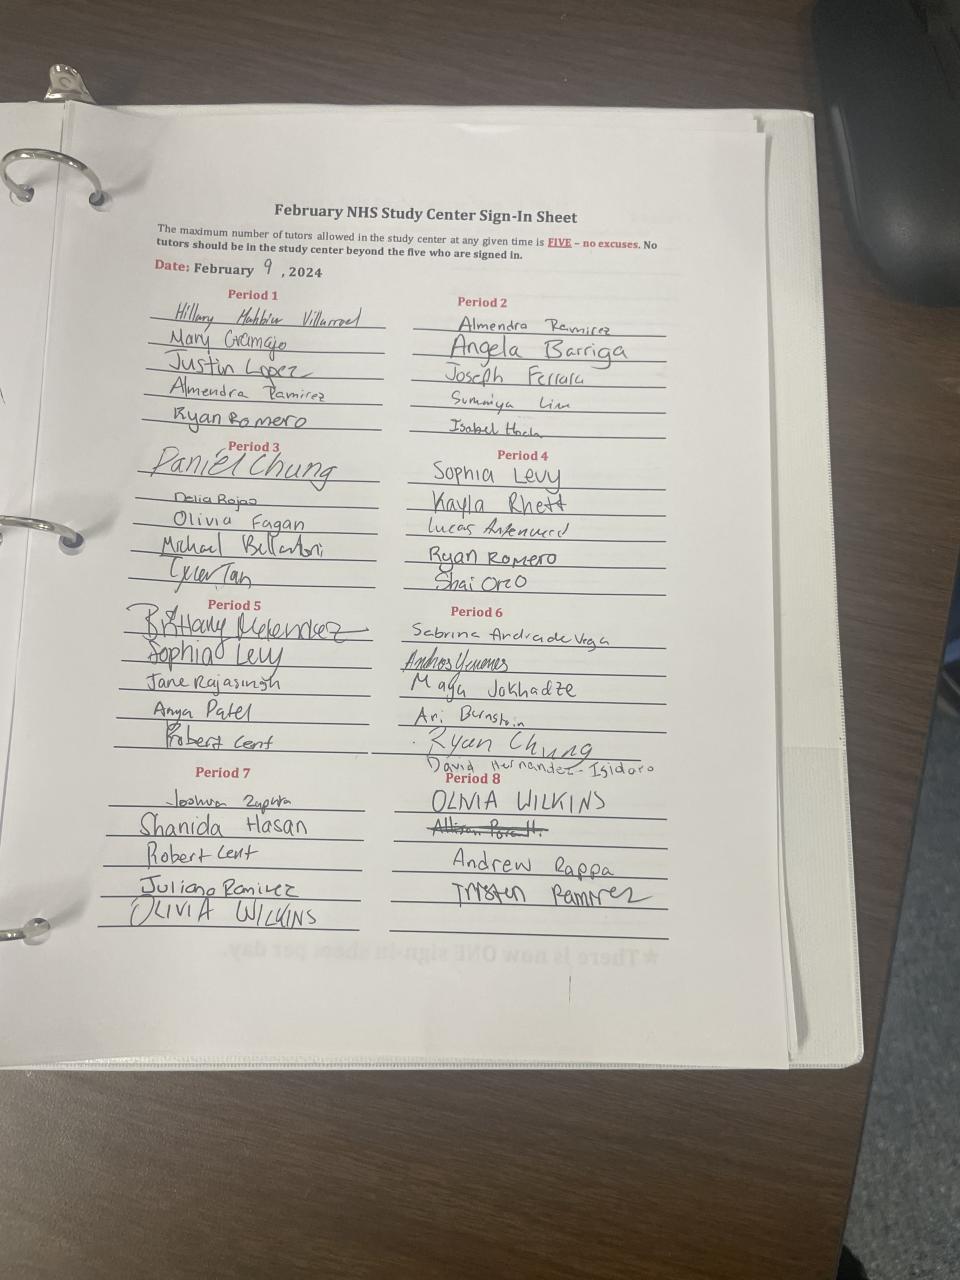 February NHS Study Center Sign-In Sheet
The maximum number of tutors allowed in the study center at any given time is FIVE – no excuses. No
tutors should be in the study center beyond the five who are signed in.
Date: February 9, 2024
Period 1
Hillary Villarroel
Mary Gramajo
Justin Lopez
Almendra Ramirez
Ryan Romero
Period 2
Almendra Ramirez
Angela Barriga
Joseph Ferrara
Sumaiya
Isabel
Period 3
Daniel Chung
Delia Rojas
Olivia Fagan
Michael
Tyler Tan
Period 4
Sophia Levy
Kayla Rhett
Lucas
Ryan Romero
Shai Orzo
Period 5
Brittany Melendez
Sophia Levy
Jane Rajasingh
Anya Patel
Robert Cent
Period 6
Sabrina Andrade Vega
Maya Jokhadze
Ari Burnstein
Ryan Chung
David Hernandez-Isidoro
Period 7
Joshua Zapata
Shanida Hasan
Robert Cent
Juliana Ramirez
OLIVIA WILKINS
Period 8
OLIVIA WILKINS
Andrew Rappa
Tristen Ramirez
★There is now ONE sign-in sheet per day.